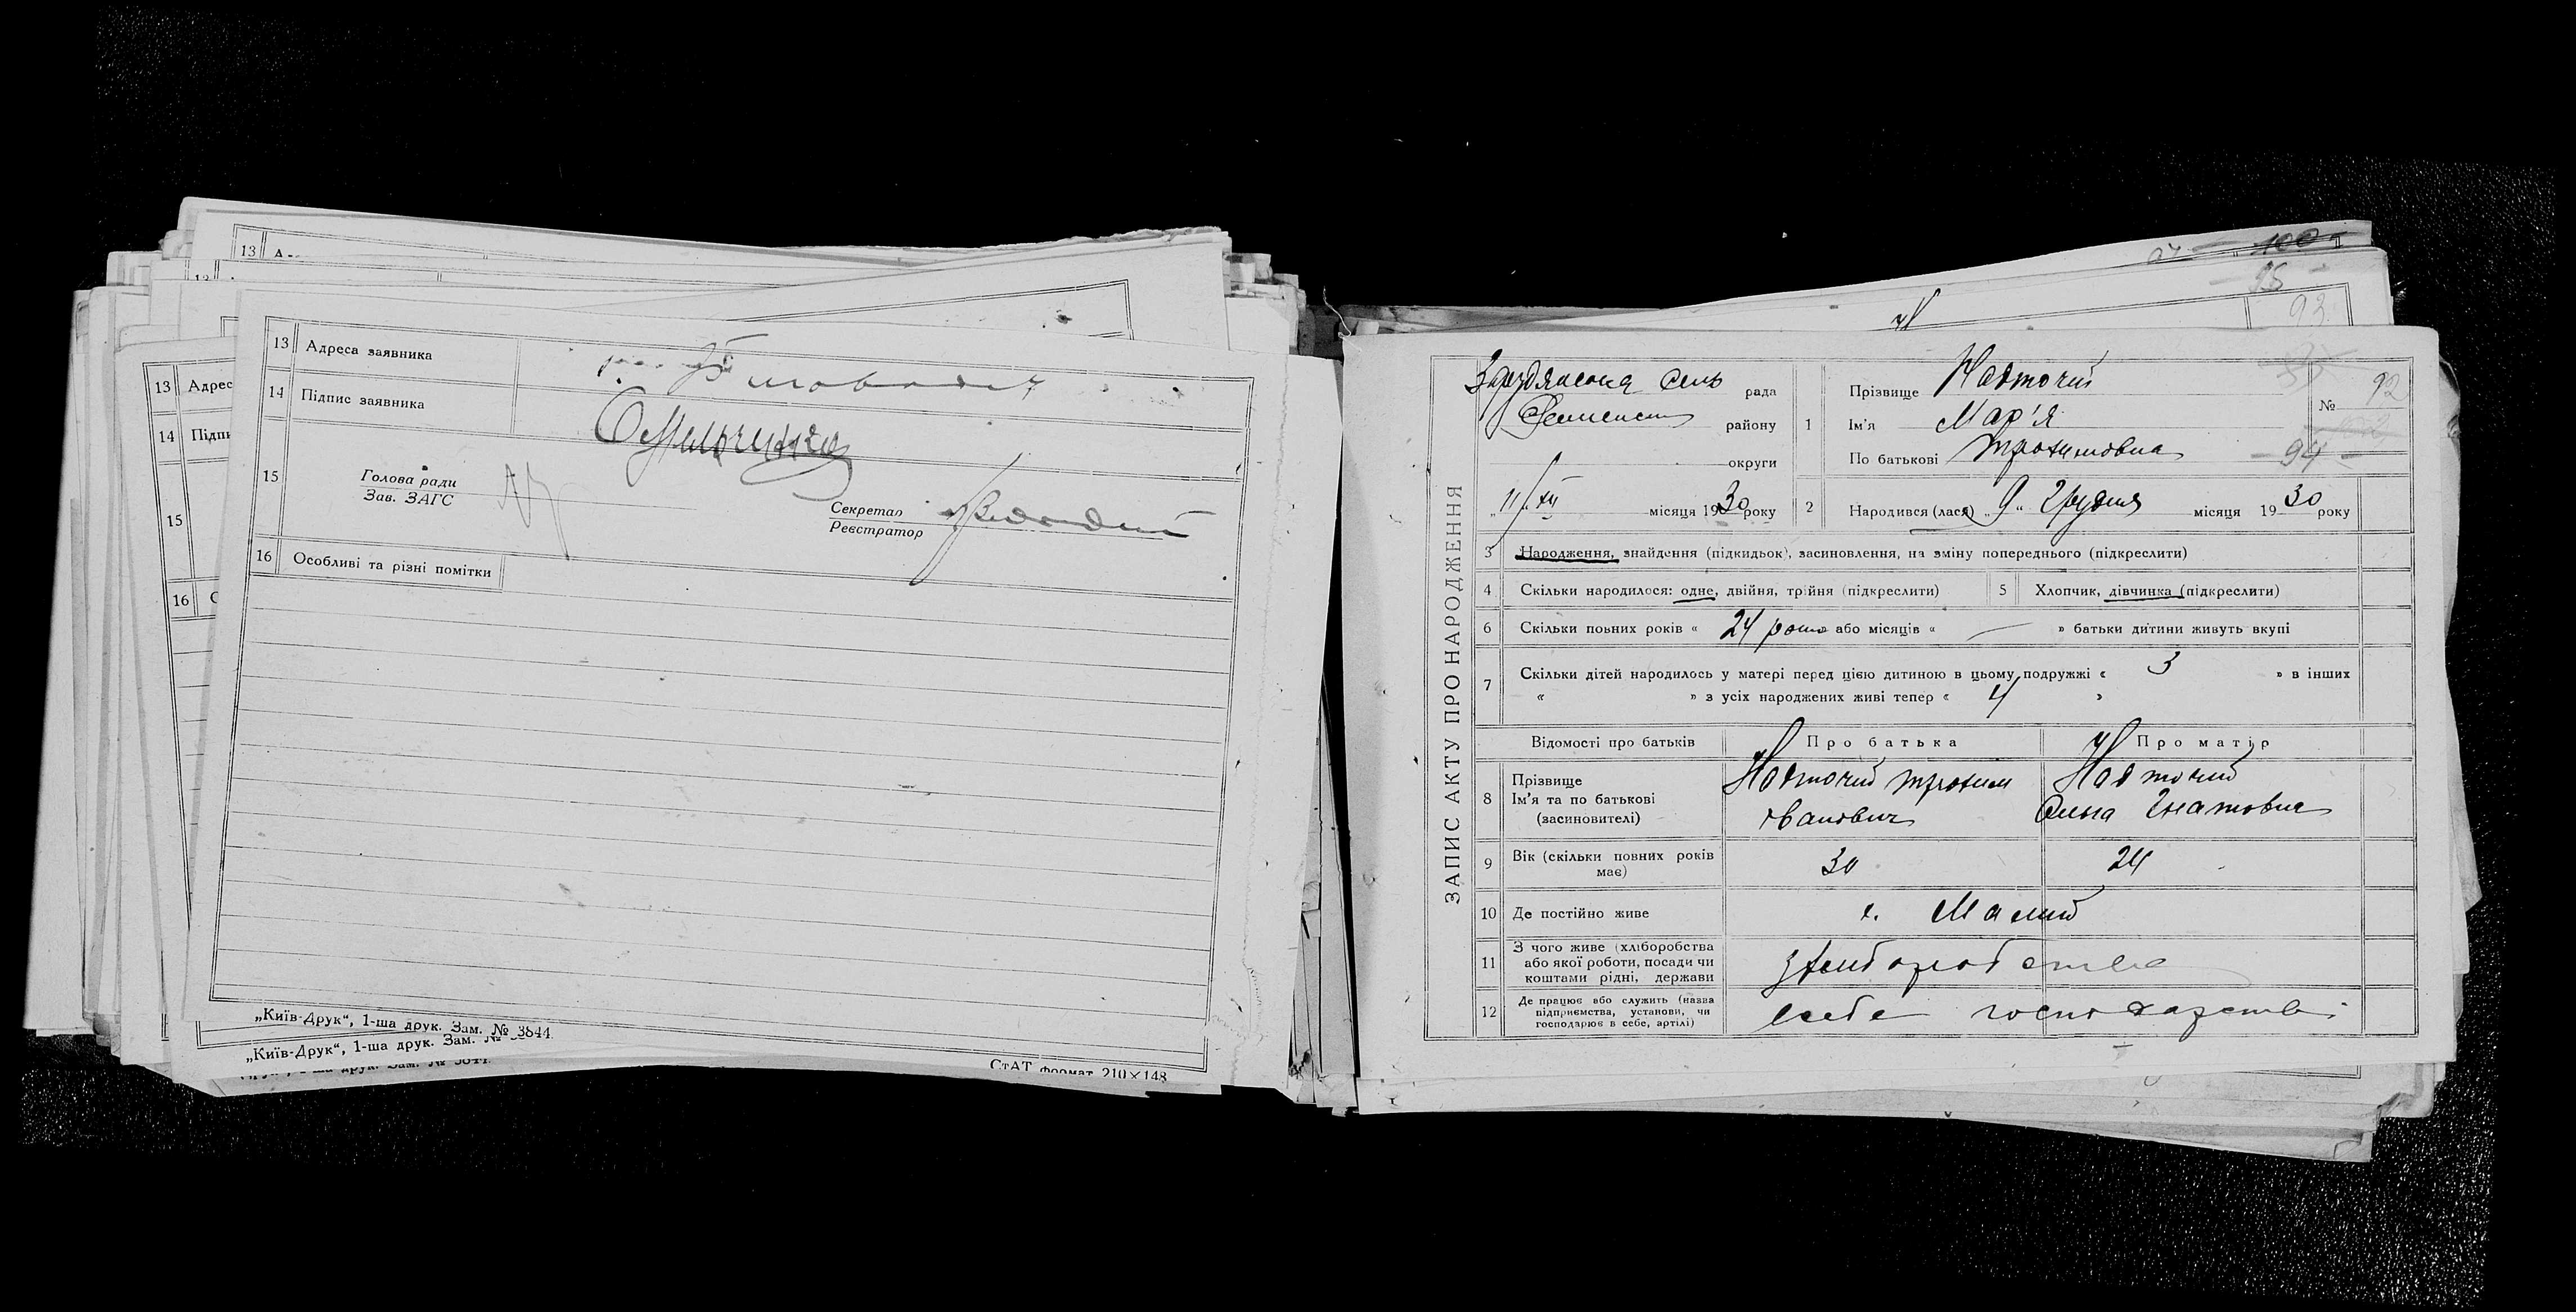 13 А
13 Адрес
14 Підпи
15
16 С
13 Адреса заявника
14 Підпис заявника
15 Голова ради
Зав. ЗАГС
Секретар
Реєстратор
16 Особливі та різні помітки
„Київ-Друк“, 1-ша друк. Зам. № 3844
„Київ-Друк“, 1-ша друк. Зам. № 3844.
СтАТ формат 210×148
100
95
93
ЗАПИС АКТУ ПРО НАРОДЖЕННЯ
сель рада
району
округи
„11/XII місяця 1930 року
1 Прізвище Навточий
Ім'я Мар'я
По батькові Трохимовна
№ 92
94
2 Народився (лася) „9“ Грудня місяця 1930 року
3 Народження, знайдення (підкидьок), засиновлення, на зміну попереднього (підкреслити)
4 Скільки народилося: одне, двійня, трійня (підкреслити)
5 Хлопчик, дівчинка (підкреслити)
6 Скільки повних років « 24 роки або місяців « — » батьки дитини живуть вкупі
7 Скільки дітей народилось у матері перед цією дитиною в цьому подружжі « 3 » в інших
« » з усіх народжених живі тепер « 4 »
Відомості про батьків Про батька Про матір
8 Прізвище
Ім'я та по батькові
(засиновителі)
Навточий Трохим
Іванович
Навточий
Ольга Гнатовна
9 Вік (скільки повних років
має)
30 24
10 Де постійно живе х. Малий
11 З чого живе (хліборобства
або якої роботи, посади чи
коштами рідні, держави
з хліборобства
12 Де працює або служить (назва
підприємства, установи, чи
господарює в себе, артілі)
в себе господарстві